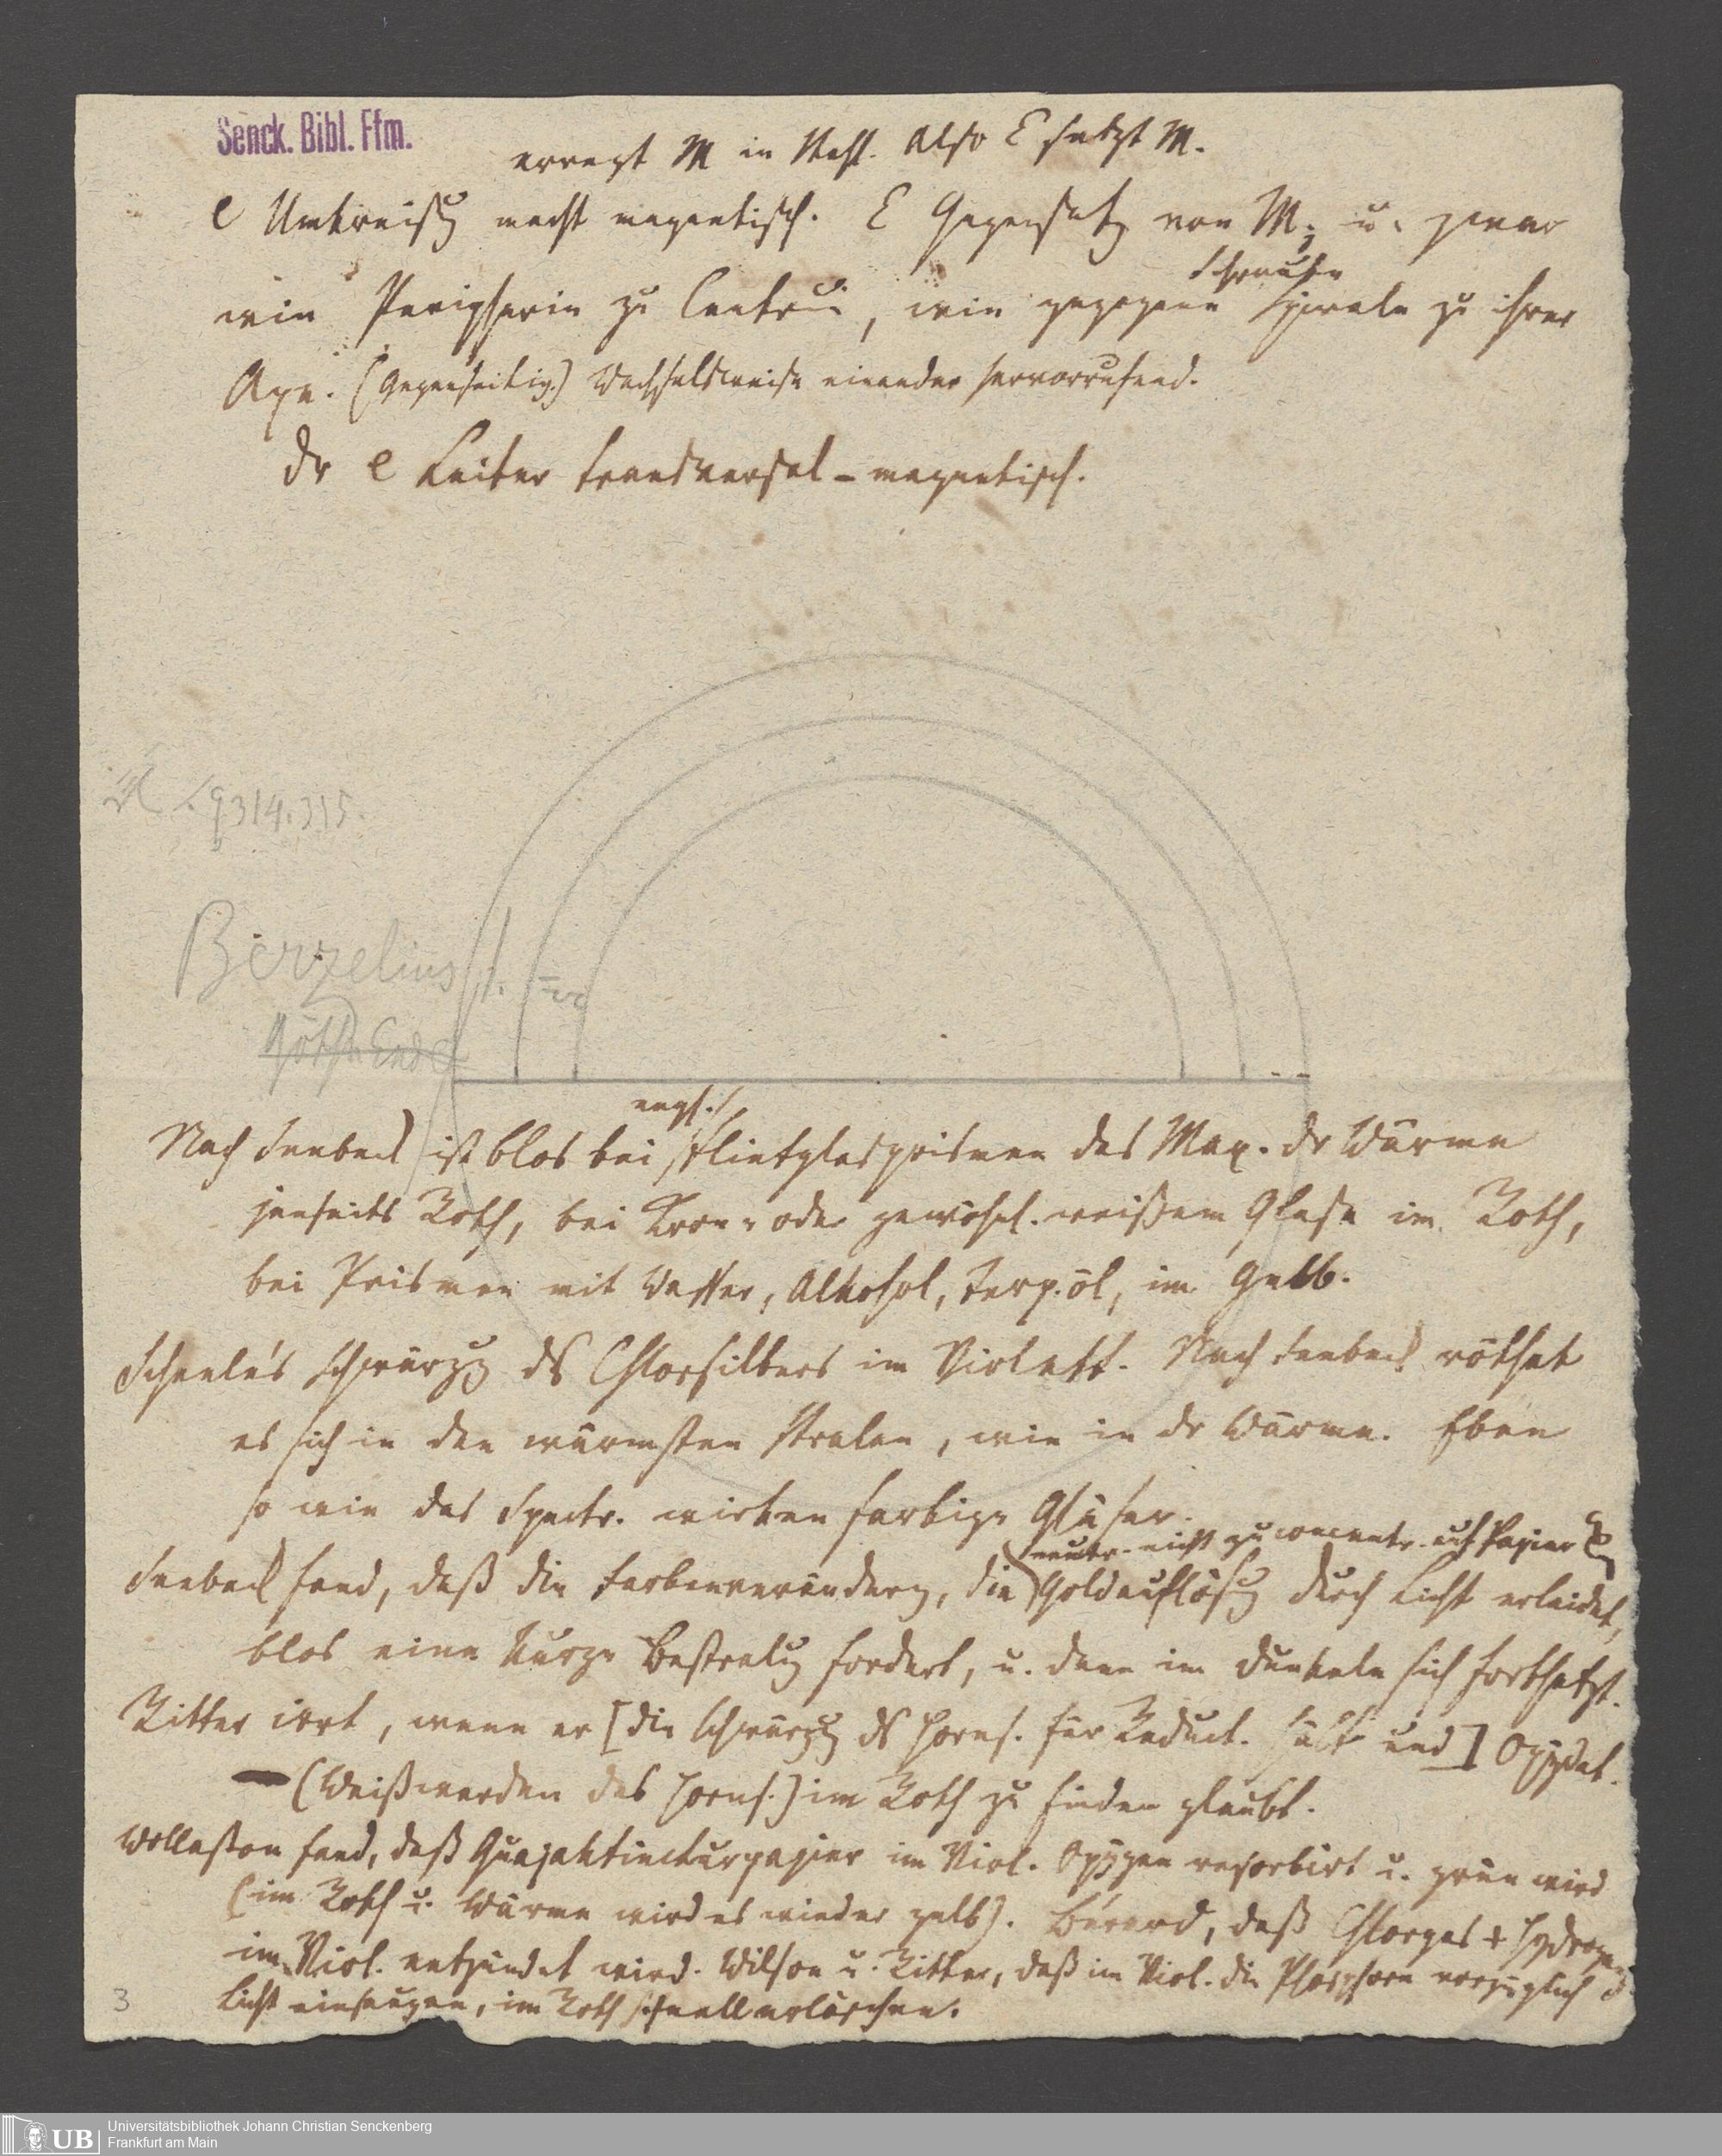 Senck. Bibl. Ffm.
erregt M in Stahl. Also E setzt M.
e Umkreisg macht magnetisch. E Gegensatz von M; u. zwar
Schraube
wie Peripherie zu Centrum, wie gezogene Spirale zu ihrer
Axe. (Gegenseitig.) Wechselsweise einander hervorrufend.
Dr e Leiter transversal-magnetisch.
314.315.
Berzelius
Rothe Ende
engl.
Nach Seebeck ist blos bei Flintglasprismen das Max. dr Wärme
jenseits Roth, bei Kron- oder gewöhnl. weißem Glase im Roth,
bei Prismen mit Wasser, Alkohol, Terp.öl, im Gelb.
Scheele's Schwärzg ds Chlorsilbers im Violett. Nach Seebeck röthet
es sich in den wärmsten Stralen, wie in dr Wärme. Eben
so wie das Spectr. wirken farbige Gläser.
neutr. nicht zu concentr. auf Papier
Seebeck fand, daß die Farbenveränderg, die Goldauflösg durch Licht erleidet,
blos eine kurze Bestralug fordert, u. dann im Dunkeln sich fortsetzt.
Ritter irrt, wenn er [die Schwärzg ds Horns. für Reduct. hält und] Oxydat.
(Weißwerden des Horns.) im Roth zu finden glaubt.
Wollaston fand, daß Guajaktincturpapier im Viol. Oxygen resorbirt u. grün wird
(im Roth u. Wärme wird es wieder gelb). Bérard, daß Chlorgas + Hydrogen
im Viol. entzündet wird. Wilson u. Ritter, daß im Viol. die Phosphore vorzüglich d.
Licht einsaugen, im Roth schnell erlöschen.
3
UB Universitätsbibliothek Johann Christian Senckenberg
Frankfurt am Main